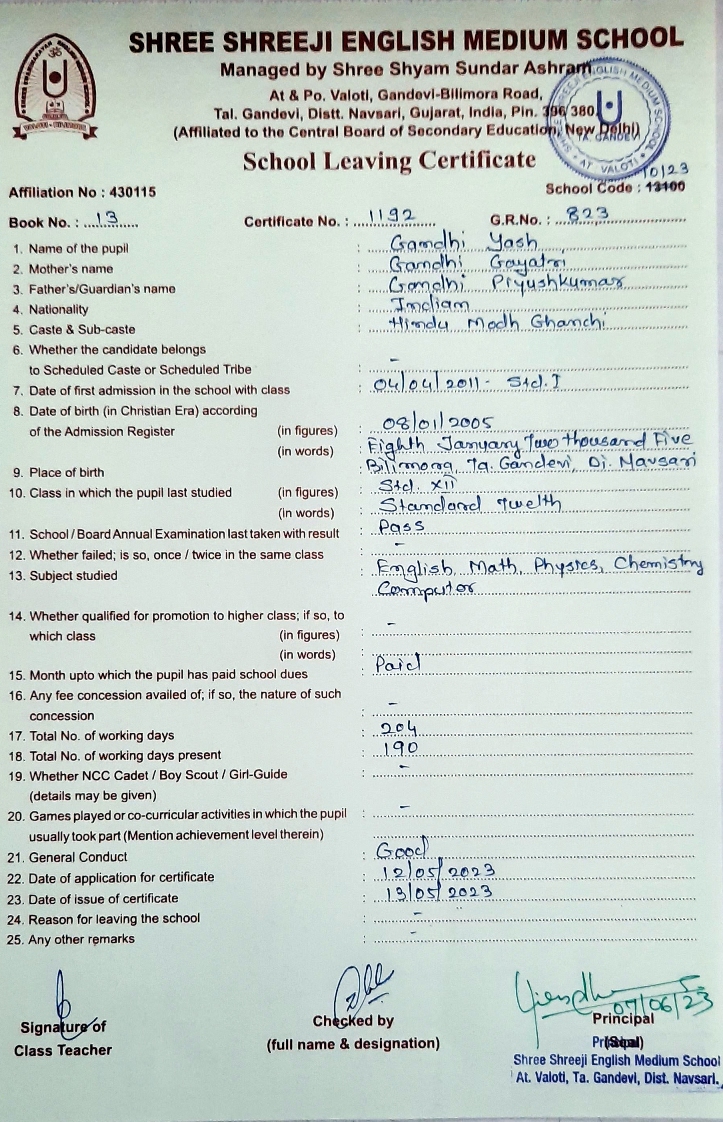 SHREE SHREEJI ENGLISH MEDIUM SCHOOL
Managed by Shree Shyam Sundar Ashram
At & Po. Valoti, Gandevi-Bilimora Road,
Tal. Gandevi, Distt. Navsari, Gujarat, India, Pin. 396 380
(Affiliated to the Central Board of Secondary Education, New Delhi)
School Leaving Certificate
10123
Affiliation No : 430115 School Code : 13100
Book No. : 13 Certificate No. : 1192 G.R.No. : 823
1. Name of the pupil : Gandhi Yash
2. Mother's name : Gandhi Gayatri
3. Father's/Guardian's name : Gandhi Piyushkumar
4. Nationality : Indian
5. Caste & Sub-caste : Hindu Modh Ghanchi
6. Whether the candidate belongs
to Scheduled Caste or Scheduled Tribe : -
7. Date of first admission in the school with class : 04/04/2011- Std. I
8. Date of birth (in Christian Era) according
of the Admission Register (in figures) : 08/01/2005
(in words) : Eighth January Two thousand Five
9. Place of birth : Bilimora, Ta. Gandevi, Di. Navsari
10. Class in which the pupil last studied (in figures) : Std. XII
(in words) : Standard Twelth
11. School / Board Annual Examination last taken with result : Pass
12. Whether failed; is so, once / twice in the same class : -
13. Subject studied : English, Math, Physics, Chemistry
Computer
14. Whether qualified for promotion to higher class; if so, to
which class (in figures) : -
(in words) :
15. Month upto which the pupil has paid school dues : Paid
16. Any fee concession availed of; if so, the nature of such
concession : -
17. Total No. of working days : 204
18. Total No. of working days present : 190
19. Whether NCC Cadet / Boy Scout / Girl-Guide : -
(details may be given)
20. Games played or co-curricular activities in which the pupil : -
usually took part (Mention achievement level therein)
21. General Conduct : Good
22. Date of application for certificate : 12/05/2023
23. Date of issue of certificate : 13/05/2023
24. Reason for leaving the school : -
25. Any other remarks : -
07/06/23
Signature of Checked by Principal
Class Teacher (full name & designation) (Seal)
Principal
Shree Shreeji English Medium School
At. Valoti, Ta. Gandevi, Dist. Navsari.